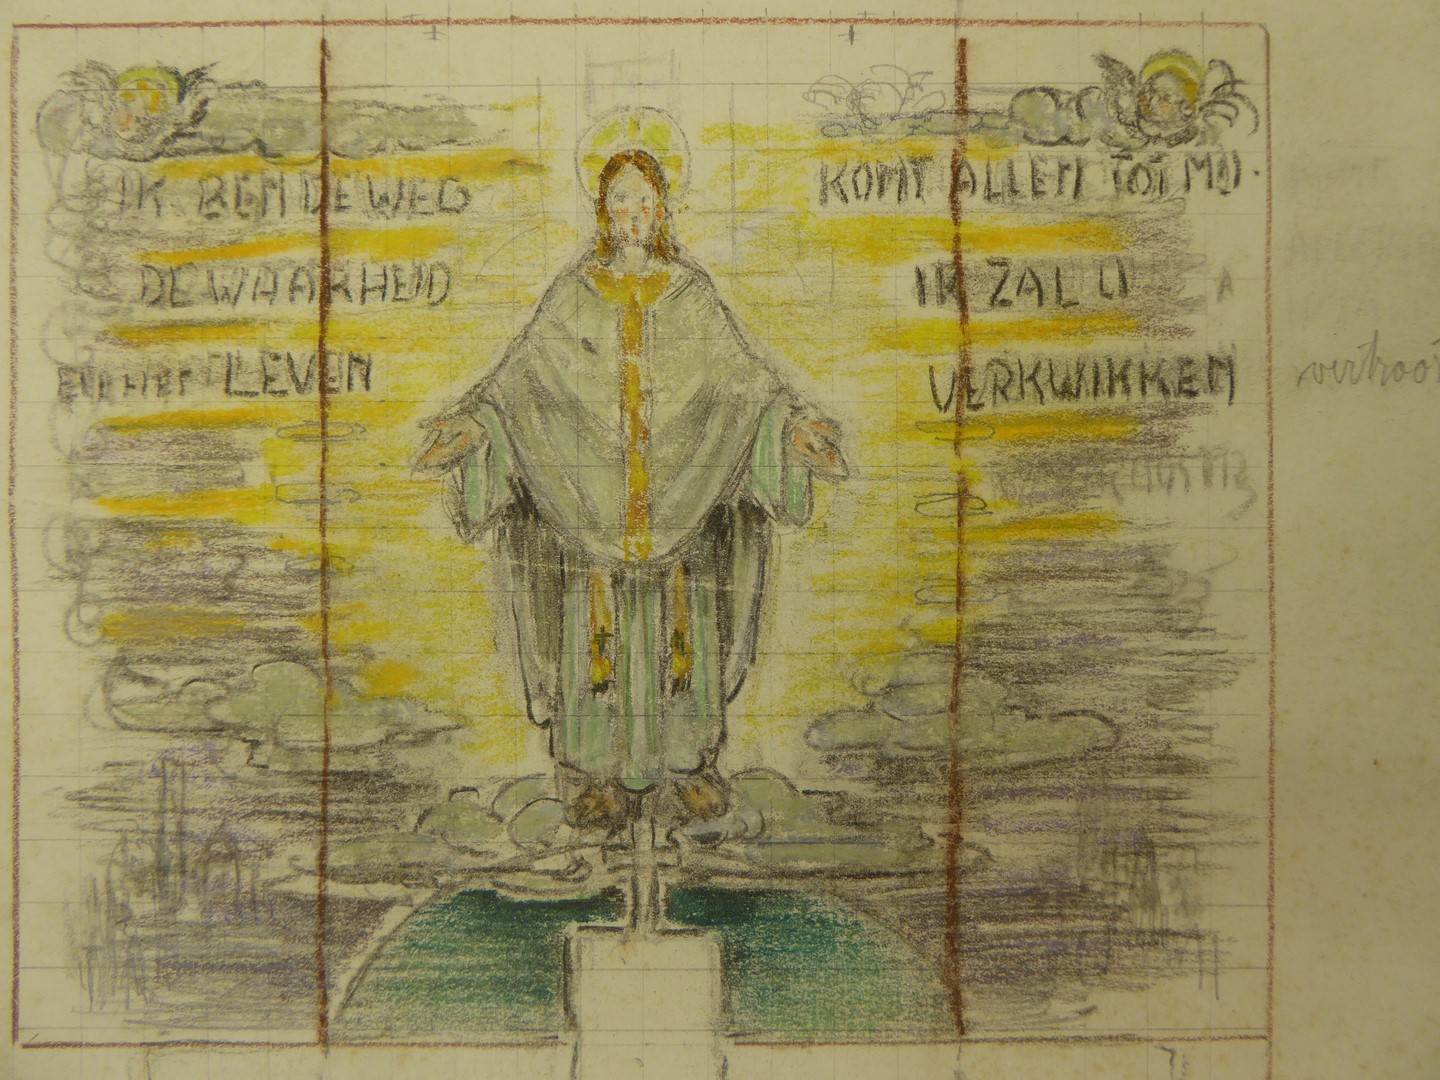 IK BEN DE WEG
DE WAARHEID
EN HET LEVEN
KOMT ALLEN TOT MIJ.
IK ZAL U
VERKWIKKEN